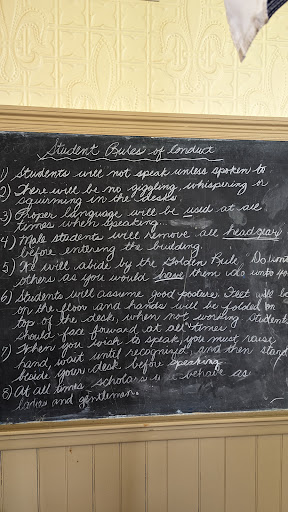 Student Rules of Conduct
1) Students will not speak unless spoken to
2) There will be no giggling, whispering or
squirming in the desks.
3) Proper language will be used at all
times when speaking.
4) Male students will remove all headgear
before entering the building.
5) We will abide by the Golden Rule. Do unto
others as you would have them do unto you
6) Students will assume good posture. Feet will be
on the floor and hands will be folded on
top of the desk, when not working. Students
should face forward at all times.
7) When you wish to speak, you must raise
hand, wait until recognized, and then stand
beside your desk before speaking
8) At all times scholars will behave as
ladies and gentleman.